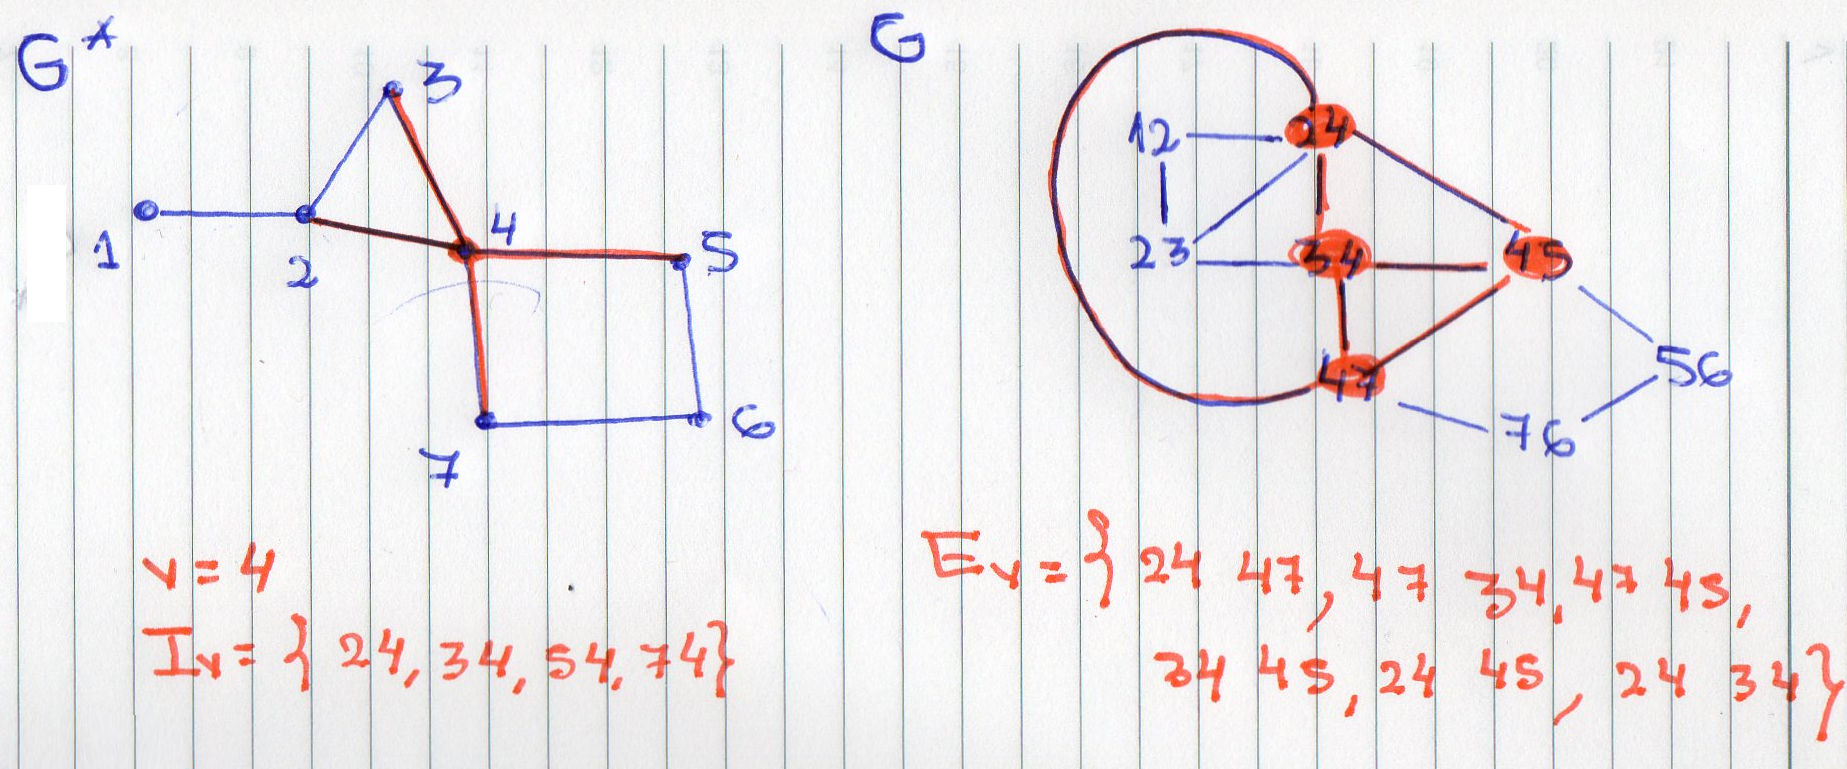 G*
3
4
1
2
5
6
7
v = 4
Iv = { 24, 34, 54, 74}
G
12
24
23
34
45
47
56
76
Ev = { 24 47, 47 34, 47 45,
34 45, 24 45, 24 34}